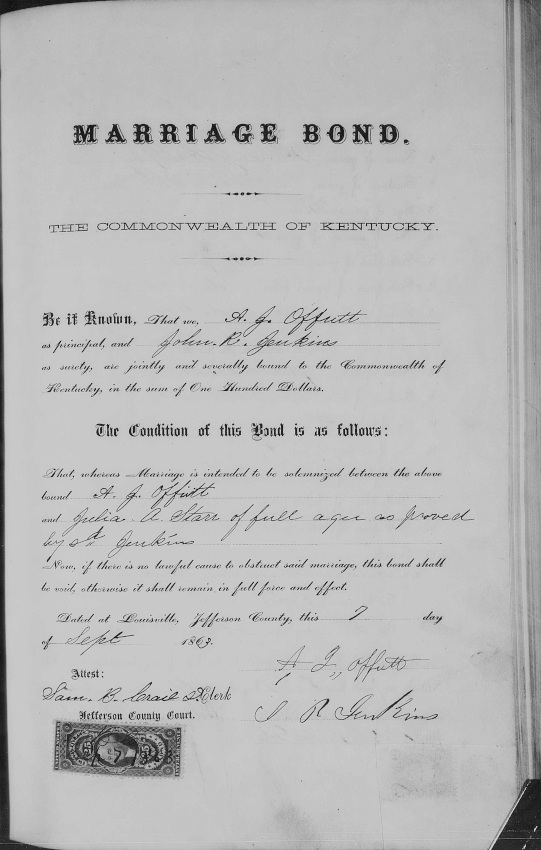 MARRIAGE BOND.
THE COMMONWEALTH OF KENTUCKY.
Be it Known, That we, A. J. Offutt
as principal, and John. R. Jenkins
as surety, are jointly and severally bound to the Commonwealth of
Kentucky, in the sum of One Hundred Dollars.
The Condition of this Bond is as follows:
That, whereas Marriage is intended to be solemnized between the above
bound A. J. Offutt
and Julia. A. Starr of full ages as proved
by sd Jenkins
Now, if there is no lawful cause to obstruct said marriage, this bond shall
be void, otherwise it shall remain in full force and effect.
Dated at Louisville, Jefferson County, this 7 day
of Sept 1863.
A J Offutt
Attest:
Sam. B. Crail Clerk
J R Jenkins
Jefferson County Court.
25 25